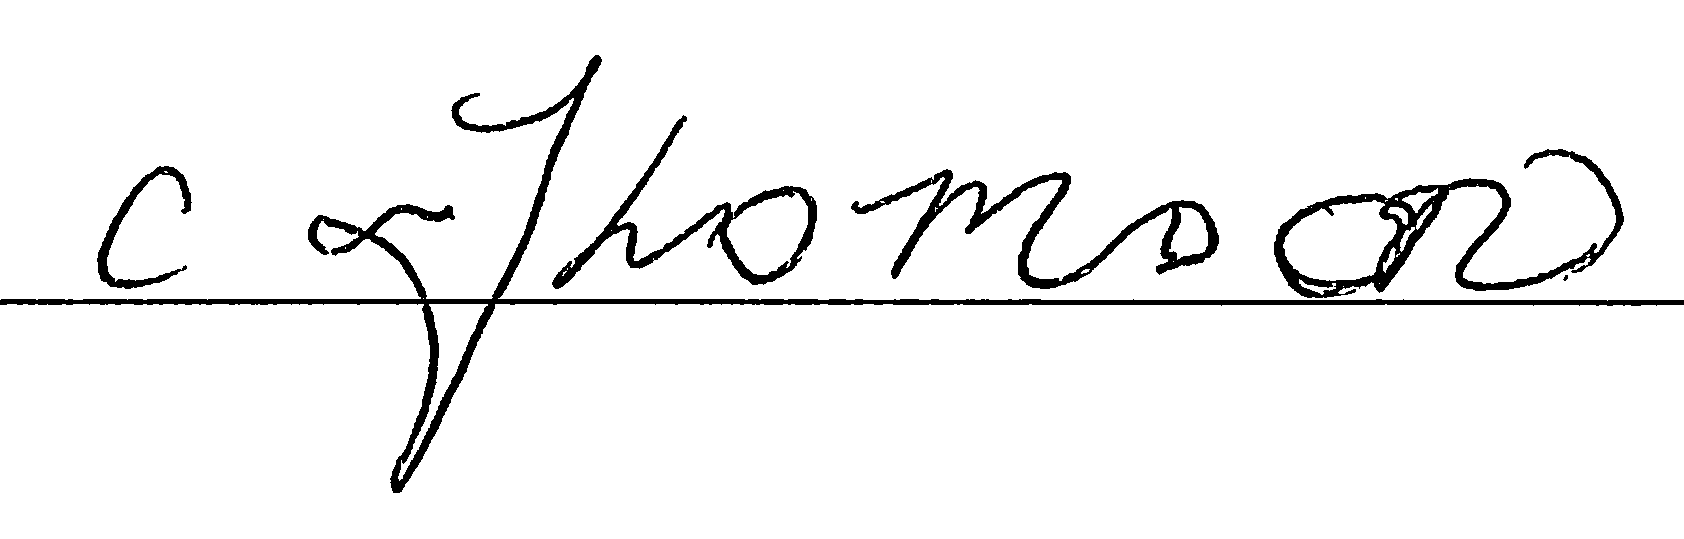 C Thomson